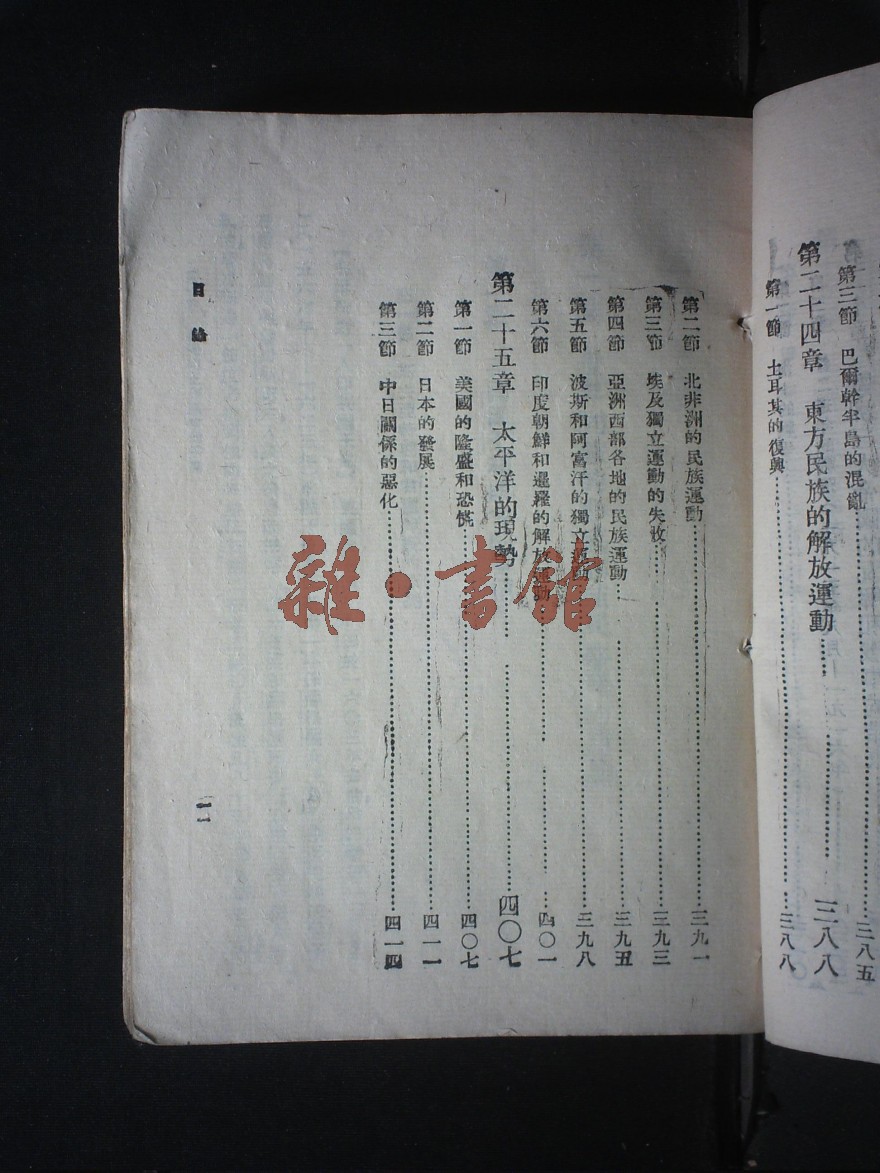 第三節　巴爾幹半島的混亂……三八五
第二十四章　東方民族的解放運動……三八八
第一節　土耳其的復興……三八八
第二節　北非洲的民族運動……三九一
第三節　埃及獨立運動的失收……三九三
第四節　亞洲西部各地的民族運動……三九五
第五節　波斯和阿富汗的獨立運動……三九八
第六節　印度朝鮮和暹羅的解放運動……四〇一
第二十五章　太平洋的現勢……四〇七
第一節　美國的隆盛和恐慌……四〇七
第二節　日本的發展……四一一
第三節　中日關係的惡化……四一四
目錄
一一
雜·書館